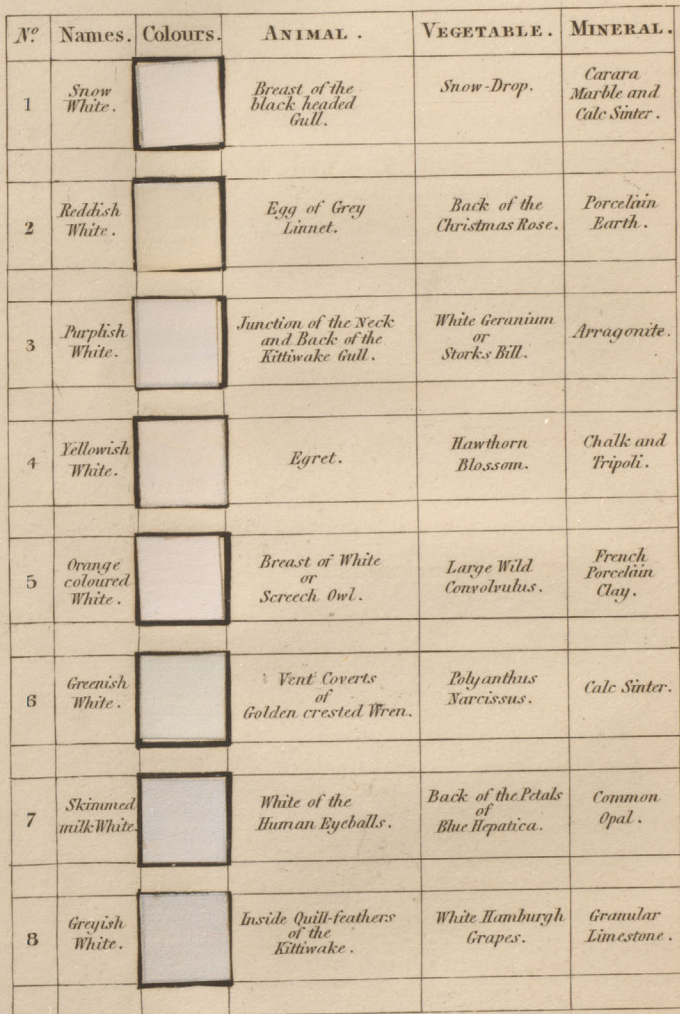 No. Names. Colours. ANIMAL. VEGETABLE. MINERAL.
1
Snow
White.
Breast of the
black headed
Gull.
Snow-Drop.
Carara
Marble and
Calc Sinter.
2
Reddish
White.
Egg of Grey
Linnet.
Back of the
Christmas Rose.
Porcelain
Earth.
3
Purplish
White.
Junction of the Neck
and Back of the
Kittiwake Gull.
White Geranium
or
Storks Bill.
Arragonite.
4
Yellowish
White.
Egret.
Hawthorn
Blossom.
Chalk and
Tripoli.
5
Orange
coloured
White.
Breast of White
or
Screech Owl.
Large Wild
Convolvulus.
French
Porcelain
Clay.
6
Greenish
White.
Vent Coverts
of
Golden crested Wren.
Polyanthus
Narcissus.
Calc Sinter.
7
Skimmed
milk White.
White of the
Human Eyeballs.
Back of the Petals
of
Blue Hepatica.
Common
Opal.
8
Greyish
White.
Inside Quill-feathers
of the
Kittiwake.
White Hamburgh
Grapes.
Granular
Limestone.